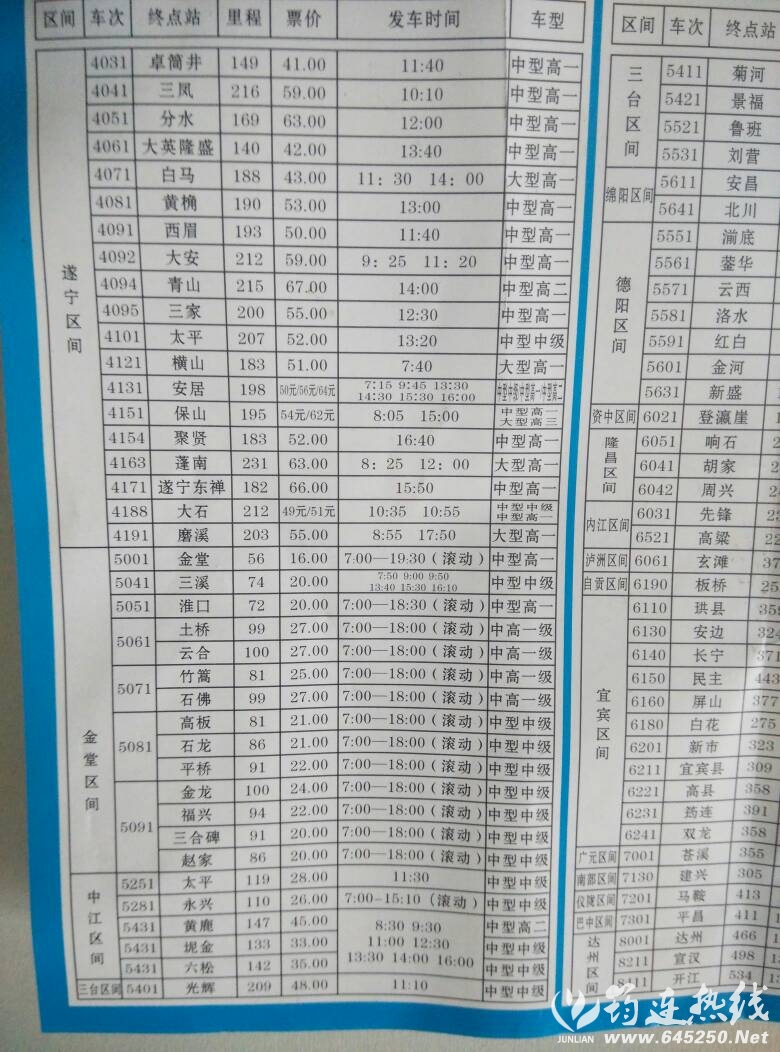 区间 车次 终点站 里程 票价 发车时间 车型
遂宁区间
4031 卓筒井 149 41.00 11:40 中型高一
4041 三凤 216 59.00 10:10 中型高一
4051 分水 169 63.00 12:00 中型高一
4061 大英隆盛 140 42.00 13:40 中型高一
4071 白马 188 43.00 11:30 14:00 大型高一
4081 黄桷 190 53.00 13:00 中型高一
4091 西眉 193 50.00 11:40 中型高一
4092 大安 212 59.00 9:25 11:20 中型高一
4094 青山 215 67.00 14:00 中型高二
4095 三家 200 55.00 12:30 中型高一
4101 太平 207 52.00 13:20 中型中级
4121 横山 183 51.00 7:40 大型高一
4131 安居 198 50元/56元/64元 7:15 9:45 13:30 中型中级/中型高一/中型高二
14:30 15:30 16:00
4151 保山 195 54元/62元 8:05 15:00 中型高一
大型高三
4154 聚贤 183 52.00 16:40 中型高一
4163 蓬南 231 63.00 8:25 12:00 大型高一
4171 遂宁东禅 182 66.00 15:50 中型高一
4188 大石 212 49元/51元 10:35 10:55 中型中级
中型高一
4191 磨溪 203 55.00 8:55 17:50 大型高一
金堂区间
5001 金堂 56 16.00 7:00—19:30(滚动) 中型高一
5041 三溪 74 20.00 7:50 9:00 9:50 中型中级
13:40 15:30 16:10
5051 淮口 72 20.00 7:00—18:30(滚动) 中型高一
5061 土桥 99 27.00 7:00—18:00(滚动) 中高一级
云合 100 27.00 7:00—18:00(滚动) 中高一级
5071 竹篙 81 25.00 7:00—18:00(滚动) 中高一级
石佛 99 27.00 7:00—18:00(滚动) 中高一级
5081 高板 81 21.00 7:00—18:00(滚动) 中型中级
石龙 86 21.00 7:00—18:00(滚动) 中型中级
平桥 91 22.00 7:00—18:00(滚动) 中型中级
5091 金龙 100 24.00 7:00—18:00(滚动) 中型中级
福兴 94 22.00 7:00—18:00(滚动) 中型中级
三合碑 91 20.00 7:00—18:00(滚动) 中型中级
赵家 86 20.00 7:00—18:00(滚动) 中型中级
中江区间
5251 太平 119 28.00 11:30 中型中级
5281 永兴 110 26.00 7:00-15:10(滚动) 中型中级
5431 黄鹿 147 45.00 8:30 9:30 中型高二
5431 坭金 133 33.00 11:00 12:30 中型中级
5431 六松 142 35.00 13:30 14:00 16:00 中型中级
三台区间 5401 光辉 209 48.00 11:10 中型中级
区间 车次 终点站
三台区间
5411 菊河
5421 景福
5521 鲁班
5531 刘营
绵阳区间
5611 安昌
5641 北川
德阳区间
5551 湔底
5561 蓥华
5571 云西
5581 洛水
5591 红白
5601 金河
5631 新盛
资中区间 6021 登瀛崖
隆昌区间
6051 响石
6041 胡家
6042 周兴
内江区间
6031 先锋
6521 高梁
泸州区间 6061 玄滩
自贡区间 6190 板桥
宜宾区间
6110 珙县
6130 安边
6140 长宁 371
6150 民主 443
6160 屏山 377
6180 白花 275
6201 新市 323
6211 宜宾县 309
6221 高县 358
6231 筠连 391
6241 双龙 358
广元区间 7001 苍溪 355
南部区间 7130 建兴 305
仪陇区间 7201 马鞍 413
巴中区间 7301 平昌 411
达州区间
8001 达州 466
8211 宣汉 498
8411 开江 534
筠连热线
JUNLIAN
www.645250.Net